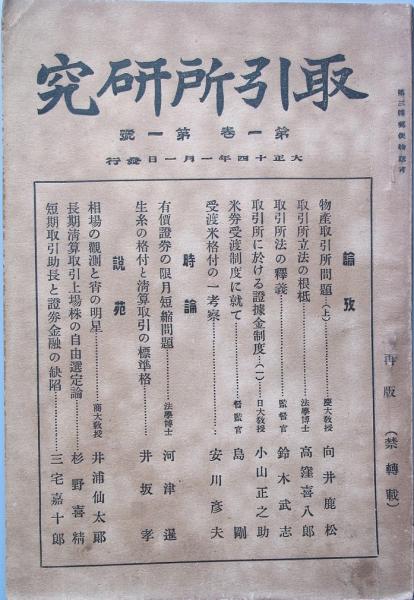 取引所研究
第一巻 第一號
大正十四年一月一日發行
第三種郵便物認可
再版（禁轉載）
論攷
物産取引所問題（上）……慶大教授 向井鹿松
取引所立法の根柢……法學博士 高窪喜八郎
取引所法の釋義……監督官 鈴木武志
取引所に於ける證據金制度（一）……日大教授 小山正之助
米券受渡制度に就て……督監官 島剛
受渡米格付の一考察……安川彦夫
時論
有價證券の限月短縮問題……法學博士 河津暹
生糸の格付と清算取引の標準格……井坂孝
説苑
相場の觀測と宵の明星……商大教授 井浦仙太郎
長期清算取引上場株の自由選定論……杉野喜精
短期取引助長と證券金融の缺陷……三宅嘉十郎